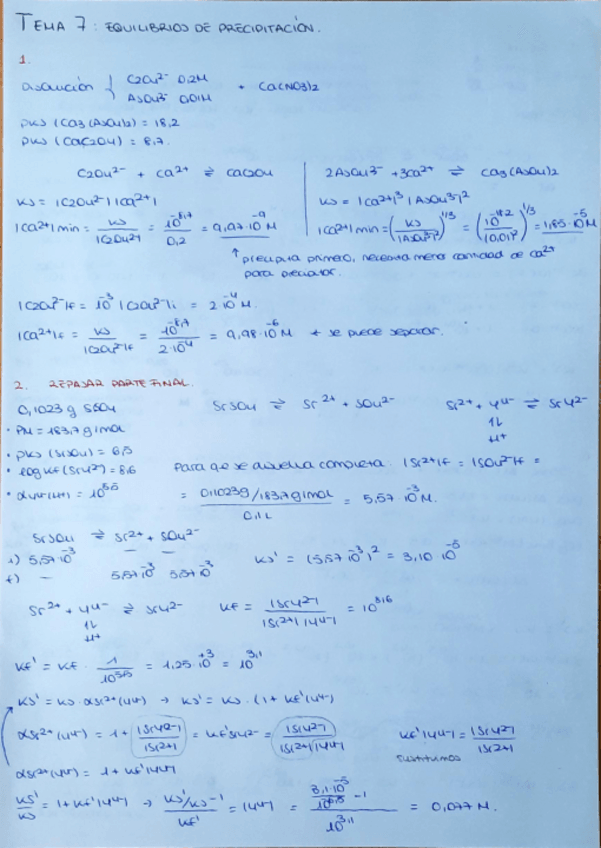 TEMA 7: EQUILIBRIOS DE PRECIPITACIÓN.
1.
disolución { C2O4²⁻ 0,2M + Ca(NO3)2
AsO4³⁻ 0,01M
pKs (Ca3(AsO4)2) = 18,2
pKs (CaC2O4) = 8,7.
C2O4²⁻ + Ca²⁺ ⇌ CaC2O4
2AsO4³⁻ + 3Ca²⁺ ⇌ Ca3(AsO4)2
Ks = |C2O4²⁻| |Ca²⁺|
Ks = |Ca²⁺|³ |AsO4³⁻|²
|Ca²⁺|min = Ks / |C2O4²⁻| = 10^-8,7 / 0,2 = 9,97·10⁻⁹ M
|Ca²⁺|min = (Ks / |AsO4³⁻|²)^1/3 = (10^-18,2 / (0,01)²)^1/3 = 1,85·10⁻⁵ M
↑ precipita primero, necesita menor cantidad de Ca²⁺
para precipitar.
|C2O4²⁻|f = 10⁻³ |C2O4²⁻|i = 2·10⁻⁴ M.
|Ca²⁺|f = Ks / |C2O4²⁻|f = 10^-8,7 / 2·10⁻⁴ = 9,98·10⁻⁶ M → se puede separar.
2. REPASAR PARTE FINAL.
0,1023 g SrSO4
SrSO4 ⇌ Sr²⁺ + SO4²⁻
Sr²⁺ + Y⁴⁻ ⇌ SrY²⁻
⇅
H⁺
· PM = 183,7 g/mol
· pKs (SrSO4) = 6,5
· log Kf (SrY²⁻) = 8,6
Para q se disuelva completa: |Sr²⁺|f = |SO4²⁻|f =
· αY⁴⁻(H⁺) = 10^5,5
= 0,1023 g / 183,7 g/mol / 0,1 L = 5,57·10⁻³ M.
SrSO4 ⇌ Sr²⁺ + SO4²⁻
i) 5,57·10⁻³ — —
Ks' = (5,57·10⁻³)² = 3,10·10⁻⁵
f) — 5,57·10⁻³ 5,57·10⁻³
Sr²⁺ + Y⁴⁻ ⇌ SrY²⁻
⇅
H⁺
Kf = |SrY²⁻| / |Sr²⁺| |Y⁴⁻| = 10^8,6
Kf' = Kf · 1 / 10^5,5 = 1,25·10⁺³ = 10^3,1
Ks' = Ks · αSr²⁺(Y⁴⁻) → Ks' = Ks · (1 + Kf' |Y⁴⁻|)
αSr²⁺(Y⁴⁻) = 1 + |SrY²⁻| / |Sr²⁺| = Kf' SrY²⁻ = |SrY²⁻| / |Sr²⁺| |Y⁴⁻|
Kf' |Y⁴⁻| = |SrY²⁻| / |Sr²⁺|
sustituimos
αSr²⁺(Y⁴⁻) = 1 + Kf' |Y⁴⁻|
Ks' / Ks = 1 + Kf' |Y⁴⁻| → Ks'/Ks − 1 / Kf' = |Y⁴⁻| = 3,1·10⁻⁵ / 10^-6,5 − 1 / 10^3,1 = 0,077 M.